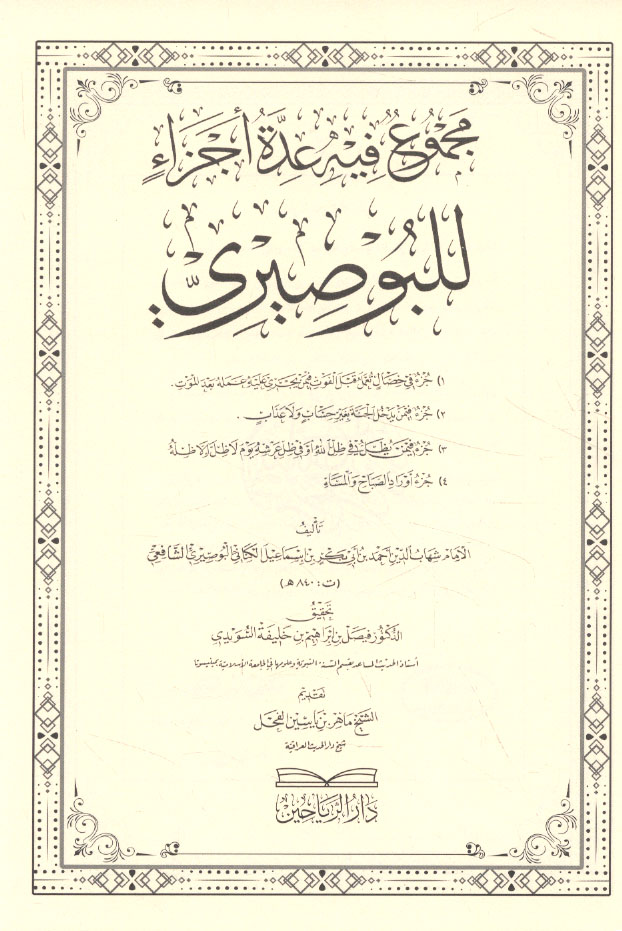 مَجْمُوعٌ فِيهِ عِدَّةُ أَجْزَاءٍ
لِلْبُوصِيرِيِّ
١) جُزْءٌ فِي خِصَالٍ تُعْمَلُ قَبْلَ الفَوْتِ فِيمَنْ يَجْرِي عَلَيْهِ عَمَلُهُ بَعْدَ المَوْتِ .
٢) جُزْءٌ فِيمَنْ يَدْخُلُ الجَنَّةَ بِغَيْرِ حِسَابٍ وَلَا عَذَابٍ .
٣) جُزْءٌ فِيمَنْ يُظَلُّ فِي ظِلِّ اللهِ أَوْ فِي ظِلِّ عَرْشِهِ يَوْمَ لَا ظِلَّ إِلَّا ظِلُّهُ
٤) جُزْءُ أَوْرَادِ الصَّبَاحِ وَالمَسَاءِ
تَأْلِيفُ
الإِمَامِ شِهَابِ الدِّينِ أَحْمَدَ بْنِ أَبِي بَكْرِ بْنِ إِسْمَاعِيلَ الكِنَانِيِّ البُوصِيرِيِّ الشَّافِعِيِّ
(ت : ٨٤٠هـ)
تَحْقِيقُ
الدُّكْتُورِ فَيْصَلِ بْنِ إِبْرَاهِيمَ بْنِ خَلِيفَةَ الشُّوَيْدِي
أستاذ الحديث المساعد بقسم السنة النبوية وعلومها في الجامعة الإسلامية بمينيسوتا
تَقْدِيمُ
الشَّيْخِ مَاهِرِ بْنِ يَاسِينَ الفَحْلِ
شيخ دار الحديث العراقية
دَارُ الرَّيَاحِين